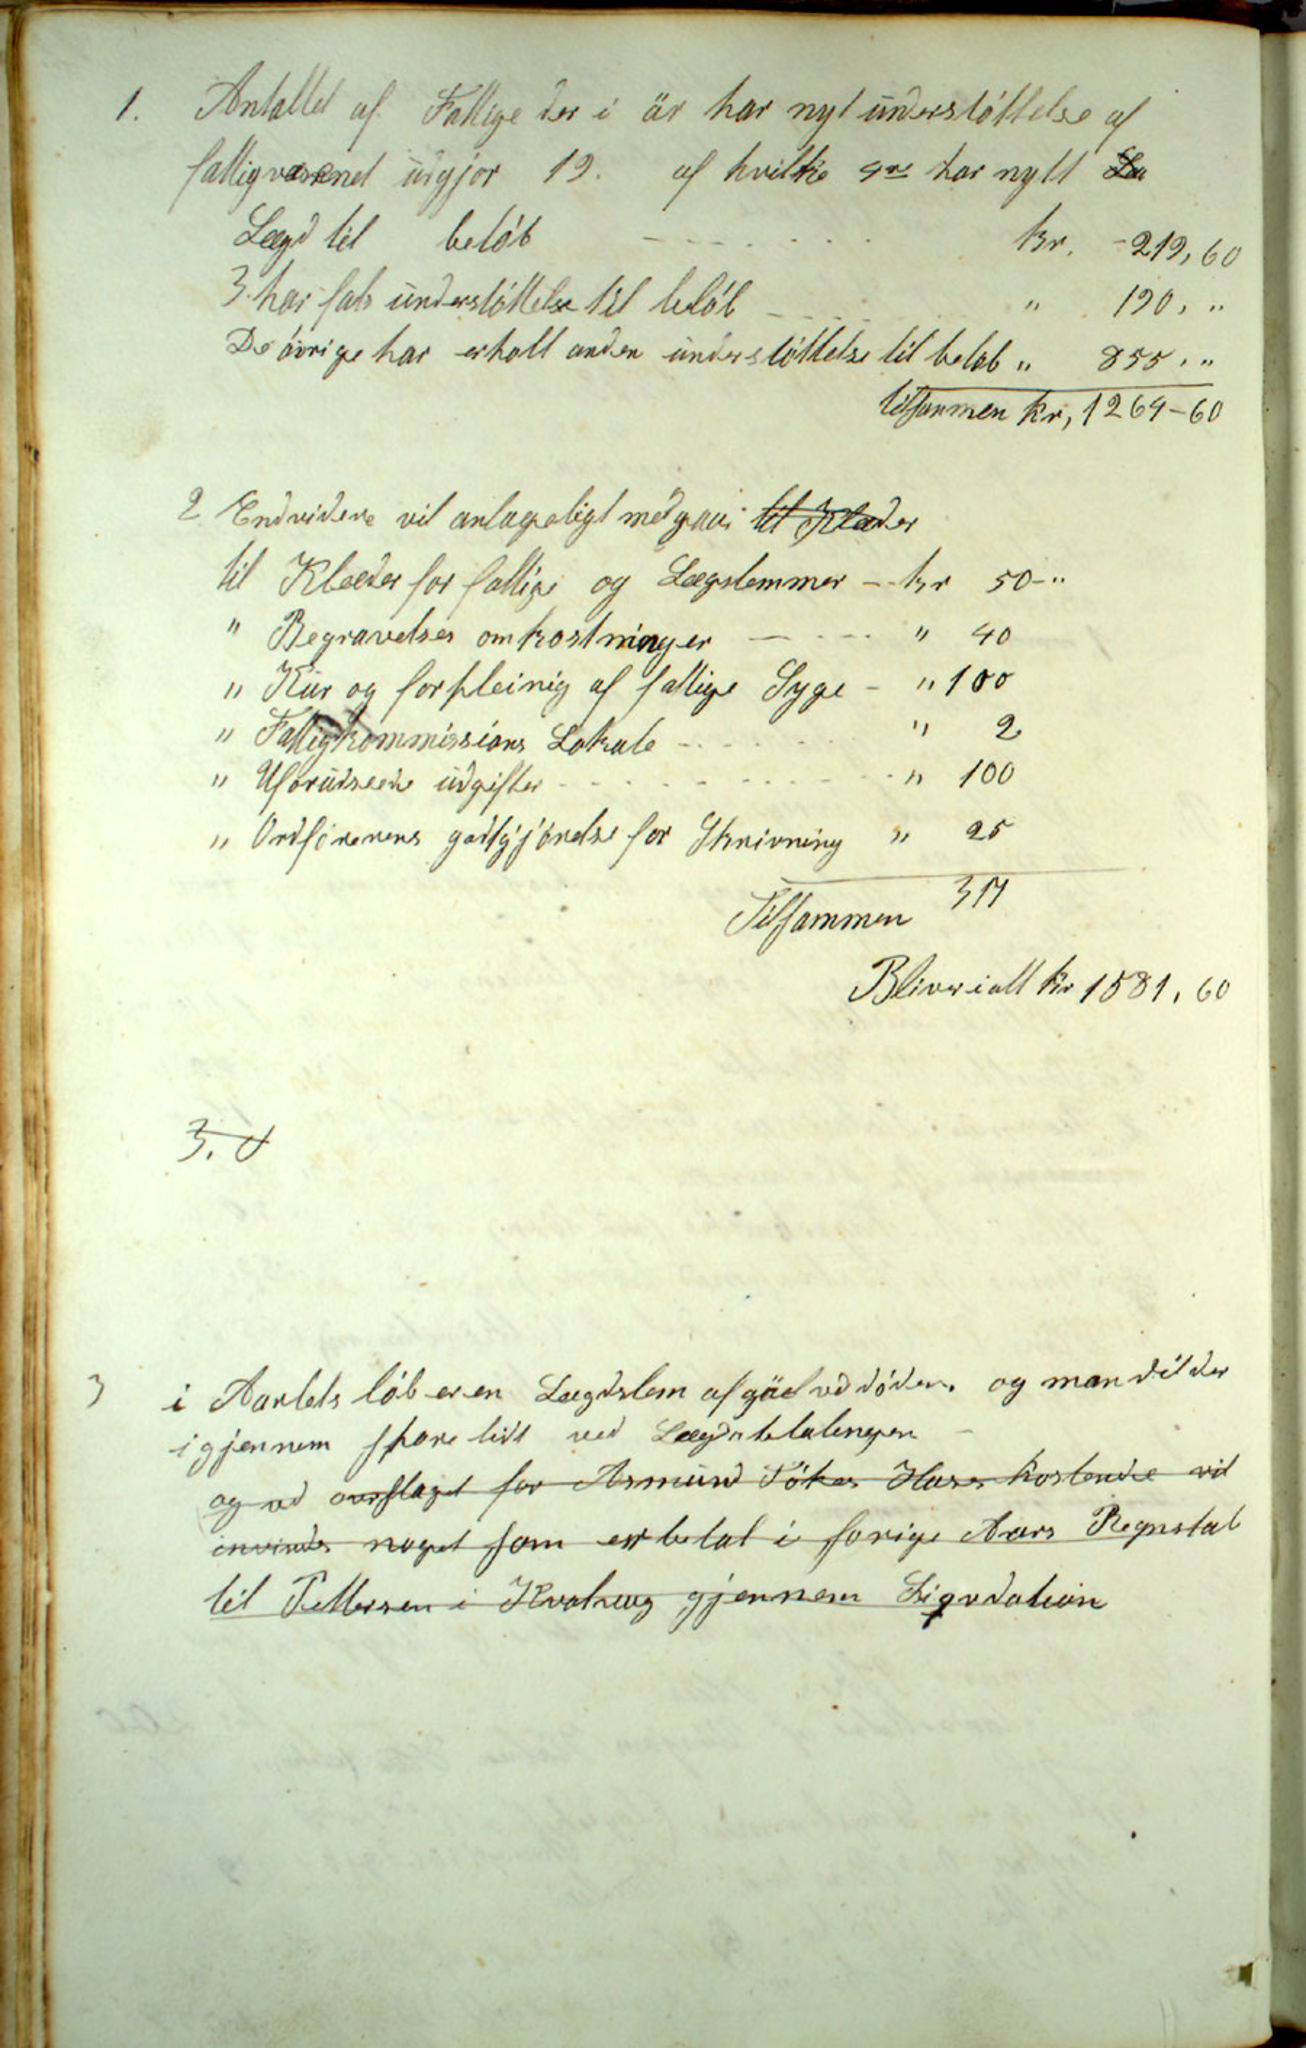 1. Antallet af Fattige der i år har nyt understöttelse af
fattigvæsenet udgjør 19. af hvilke 4re har nytt La
Lægd til beløb - - - - - - kr. - 219,60
3. har fats understöttelse til beløb - - - - - " 190, "
De övrige har erholt anden understöttelse til beløb " 855, "
tilsammen kr, 1264-60
2 Endvidere vil antageligt medgaa til Klæder
til Klæder for fattige og Lægslemmer - - kr 50-"
" Begravelses omkostninger - - - - " 40
" Kur og forpleinig af fattige Syge - " 100
" Fattigkommissions Lokale - - - - - " 2
" Uforudseede udgifter - - - - - - - - " 100
" Ordförerens godtgjörelse for Skrivning " 25
Tilsammen 317
Bliver i alt kr 1581,60
3. d
3 i Aarlets löb er en Lægdslem afgåed vd döden. og man vil der
igjennem spare lidt ved Lægdsbetalingen -
og vd overslaget for Asmund Hases kostende vil
invindes noget som er betal i forige Aars Regnskab
til Pettersen i gjennem Liqvdation